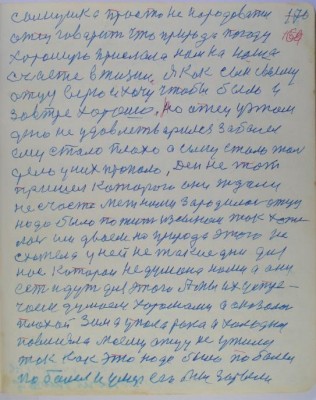 солнушко просто не нарадоватся 176
отец говорит что природа погоду
хорошую прислала нам на наше
счастье в жизни, я как сын своему
отцу верю и хочу чтобы было и
завтре хорошо, но отец этим
дело не удовлетворился заболел
ему стало плохо а сыну стало жал
дел у них пропало, Ден не тот
пришел которого они ждали
несчастье меж ними зародилось отцу
надо было пожить и сыном так хоте
лос им двоем но природа этого не
схотела у ней не такие дни для
нас которая не думала нами а они
сег идут для этого А мы их встре-
чаем думаем хорошими а оказался
плохой Зима упокорока и холодна
повлияла моему отцу не ужилу
так как это надо было поболел
поболел и умер его мы зарыли